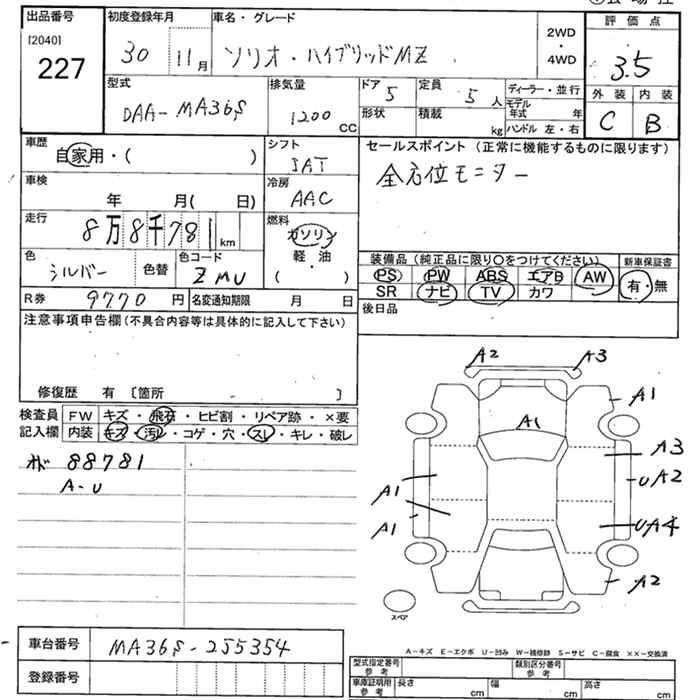 出品番号 初度登録年月 車名・グレード 評価点
[2040]
227 30 11月 ソリオ・ハイブリッドMZ 2WD・4WD 3.5
型式 排気量 ドア 定員 ディーラー・並行 外装 内装
DAA-MA36S 1200CC 5 5人 モデル年式 年 C B
形状 積載 kg ハンドル 左・右
車歴 シフト セールスポイント (正常に機能するものに限ります)
自家用・( ) 全方位モニター
車検 冷房
年 月( 日) AAC
走行 燃料
8万8千781km ガソリン
色 色替 色コード 軽油 装備品(純正品に限り○をつけてください) 新車保証書
シルバー ZMU ・( ) PS PW ABS エアB AW 有・無
SR ナビ TV カワ
R券 9770円 名変通知期限 月 日 後日品
注意事項申告欄(不具合内容等は具体的に記入して下さい)
修復歴 有 [箇所 ]
検査員 FW キズ・飛石・ヒビ割・リペア跡・×要
記入欄 内装 キズ・汚レ・コゲ・穴・スレ・キレ・破レ
88781
A-U
A2 A3
A1
A1
A3
UA2
A1
UA4
A1
A2
スペア
車台番号 MA36S-255354
A-キズ E-エクボ U-凹み W-補修跡 S-サビ C-腐食 ××-交換済
登録番号
型式指定番号 参考 類別区分番号 参考
車庫証明用 参考 長さ cm 幅 cm 高さ cm